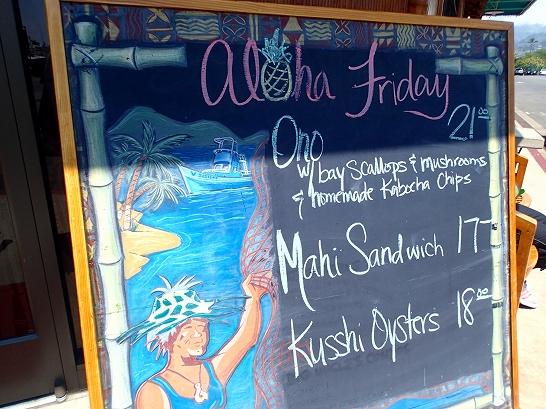 Aloha Friday
Ono 21.00
w/ bay scallops & mushrooms
& homemade Kabocha Chips
Mahi Sandwich 17-
Kusshi Oysters 18.00